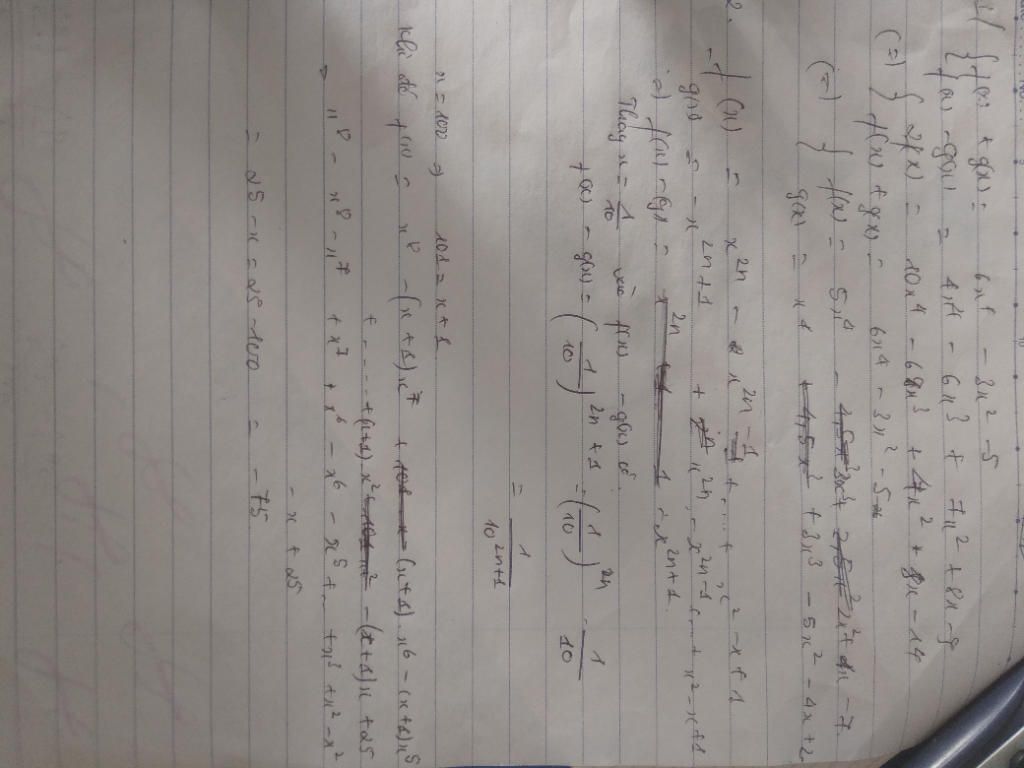 1/ { f(x) + g(x) = 6x⁴ - 3x² - 5
f(x) - g(x) = 4x⁴ - 6x³ + 7x² + 8x - 9
(=) { 2f(x) = 10x⁴ - 6x³ + 4x² + 8x - 14
f(x) + g(x) = 6x⁴ - 3x² - 5
(=) { f(x) = 5x⁴ - 3x³ + 2x² + 4x - 7
g(x) = x⁴ + 3x³ - 5x² - 4x + 2
2.
- f(x) = x²ⁿ - x²ⁿ⁻¹ + .... + x² - x + 1
g(x) = - x²ⁿ⁺¹ + x²ⁿ - x²ⁿ⁻¹ + ... + x² - x + 1
=) f(x) - g(x) = x²ⁿ⁺¹
Thay x = 1/10 vào f(x) - g(x) có
f(x) - g(x) = (1/10)²ⁿ⁺¹ = (1/10)²ⁿ . 1/10
= 1/10²ⁿ⁺¹
x = 100 => 101 = x + 1
khi đó f(x) = x⁸ - (x+1)x⁷ + (x+1)x⁶ - (x+1)x⁵
+ .... + (x+1)x² - (x+1)x + 25
→ x⁸ - x⁸ - x⁷ + x⁷ + x⁶ - x⁶ - x⁵ + ... + x³ + x² - x²
- x + 25
= 25 - x = 25 - 100 = - 75